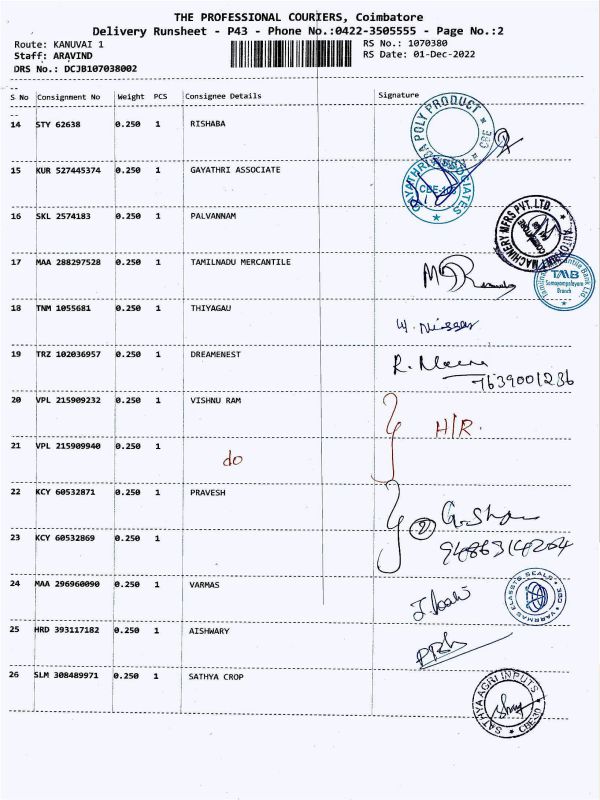 THE PROFESSIONAL COURIERS, Coimbatore
Delivery Runsheet - P43 - Phone No.:0422-3505555 - Page No.:2
Route: KANUVAI 1 RS No.: 1070380
Staff: ARAVIND RS Date: 01-Dec-2022
DRS No.: DCJB107038002
S No Consignment No Weight PCS Consignee Details Signature
14 STY 62638 0.250 1 RISHABA
POLY PRODUCT CBE
15 KUR 527445374 0.250 1 GAYATHRI ASSOCIATE
GAYATHRI ASSOCIATES
16 SKL 2574183 0.250 1 PALVANNAM
MACHINERY MFRS PVT. LTD.
17 MAA 288297528 0.250 1 TAMILNADU MERCANTILE
TMB
Branch
18 TNM 1055681 0.250 1 THIYAGAU
19 TRZ 102036957 0.250 1 DREAMENEST
R. Meena
7639001236
20 VPL 215909232 0.250 1 VISHNU RAM
H/R.
21 VPL 215909940 0.250 1
do
22 KCY 60532871 0.250 1 PRAVESH
2
23 KCY 60532869 0.250 1
24 MAA 296960090 0.250 1 VARMAS
25 HRD 393117182 0.250 1 AISHWARY
26 SLM 308489971 0.250 1 SATHYA CROP
SATHYA AGRI INPUTS